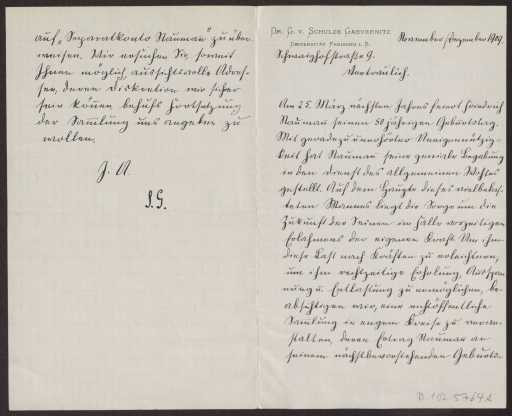 auf „Separatkonto Naumann" zu über-
weisen. Wir ersuchen Sie, soweit
Ihnen möglich, aussichtsvolle Adres-
sen, deren Diskretion wir sicher
sein können, behufs Fortsetzung
der Sammlung uns angeben zu
wollen.
J. A.
S. G.
DR. G. V. SCHULZE GAEVERNITZ
UNIVERSITÄT FREIBURG I. B.
November/Dezember 1909.
Schwaighofstraße 9.
Vertraulich.
Am 25. März nächsten Jahres feiert Friedrich
Naumann seinen 50 jährigen Geburtstag.
Mit geradezu unerhörter Uneigennützig-
keit hat Naumann seine geniale Begabung
in den Dienst des allgemeinen Wohles
gestellt. Auf dem Haupte dieses vielbelas-
teten Mannes liegt die Sorge um die
Zukunft der Seinen im Falle vorzeitigen
Erlahmens der eigenen Kraft. Um ihm
diese Last nach Kräften zu erleichtern,
um ihm rechtzeitige Erholung, Ausspan-
nung u. Entlastung zu ermöglichen, be-
absichtigen wir, eine nichtöffentliche
Sammlung in engem Kreise zu veran-
stalten, deren Ertrag Naumann an
seinem nächstbevorstehenden Geburts-